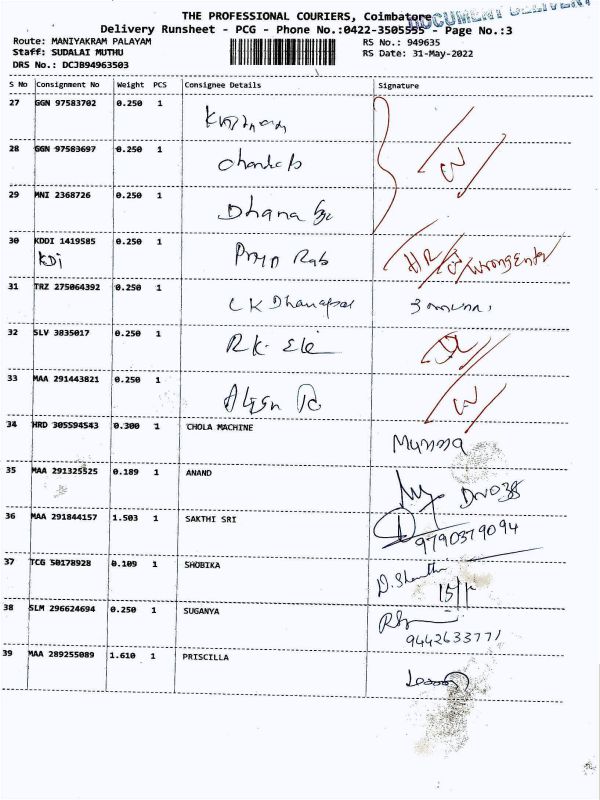 DOCUMENT DELIVERY
THE PROFESSIONAL COURIERS, Coimbatore
Delivery Runsheet - PCG - Phone No.:0422-3505555 - Page No.:3
Route: MANIYAKRAM PALAYAM RS No.: 949635
Staff: SUDALAI MUTHU RS Date: 31-May-2022
DRS No.: DCJB94963503
S No Consignment No Weight PCS Consignee Details Signature
27 GGN 97583702 0.250 1
28 GGN 97583697 0.250 1
29 MNI 2368726 0.250 1 Dhana
30 KDDI 1419585 0.250 1 HR Wrong Enter
KDI
31 TRZ 275064392 0.250 1 CK Dhanapal
32 SLV 3835017 0.250 1 RK. Ele
33 MAA 291443821 0.250 1
34 HRD 305594543 0.300 1 CHOLA MACHINE
35 MAA 291325525 0.189 1 ANAND
36 MAA 291844157 1.503 1 SAKTHI SRI 9790379094
37 TCG 50178928 0.109 1 SHOBIKA D. Shanthi
38 SLM 296624694 0.250 1 SUGANYA 9442633771
39 MAA 289255089 1.610 1 PRISCILLA